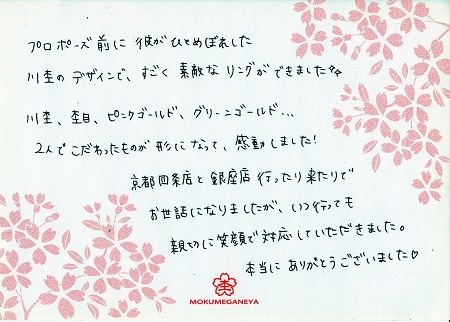 プロポーズ前に彼がひとめぼれした
川杢のデザインで、すごく素敵なリングができました☆☆
川杢、杢目、ピンクゴールド、グリーンゴールド...
2人でこだわったものが形になって、感動しました!
京都四条店と銀座店行ったり来たりで
お世話になりましたが、いつ行っても
親切に笑顔で対応していただきました。
本当にありがとうございました♡
杢
MOKUMEGANEYA